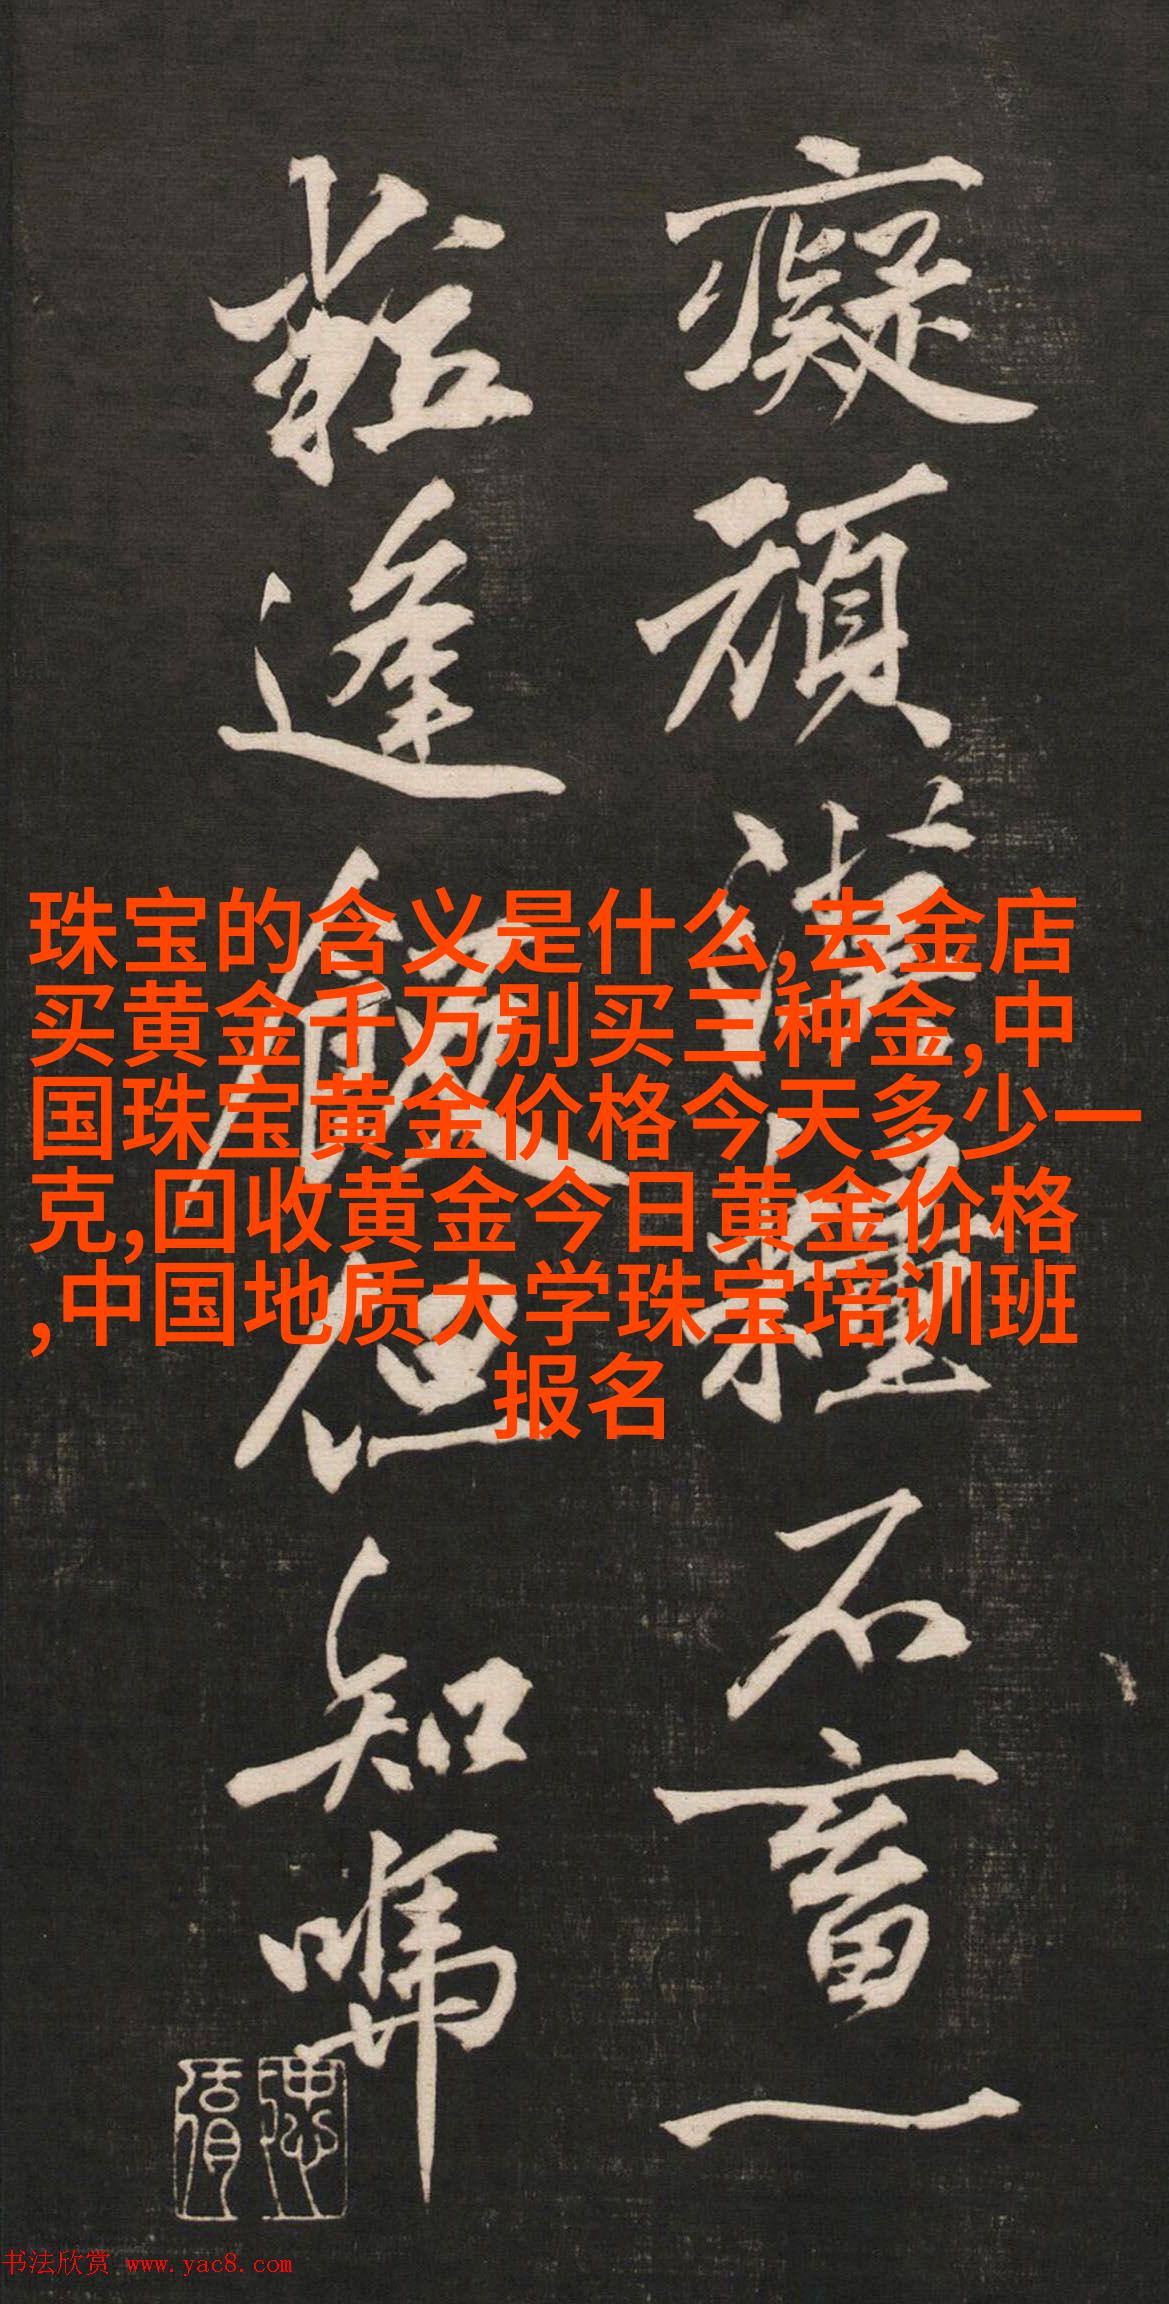 癡頑漢種石畜一
逢飯但知
珠宝的含义是什么,去金店
买黄金千万别买三种金,中
国珠宝黄金价格今天多少一
克,回收黄金今日黄金价格
,中国地质大学珠宝培训班
报名
书法欣赏 www.yac8.com